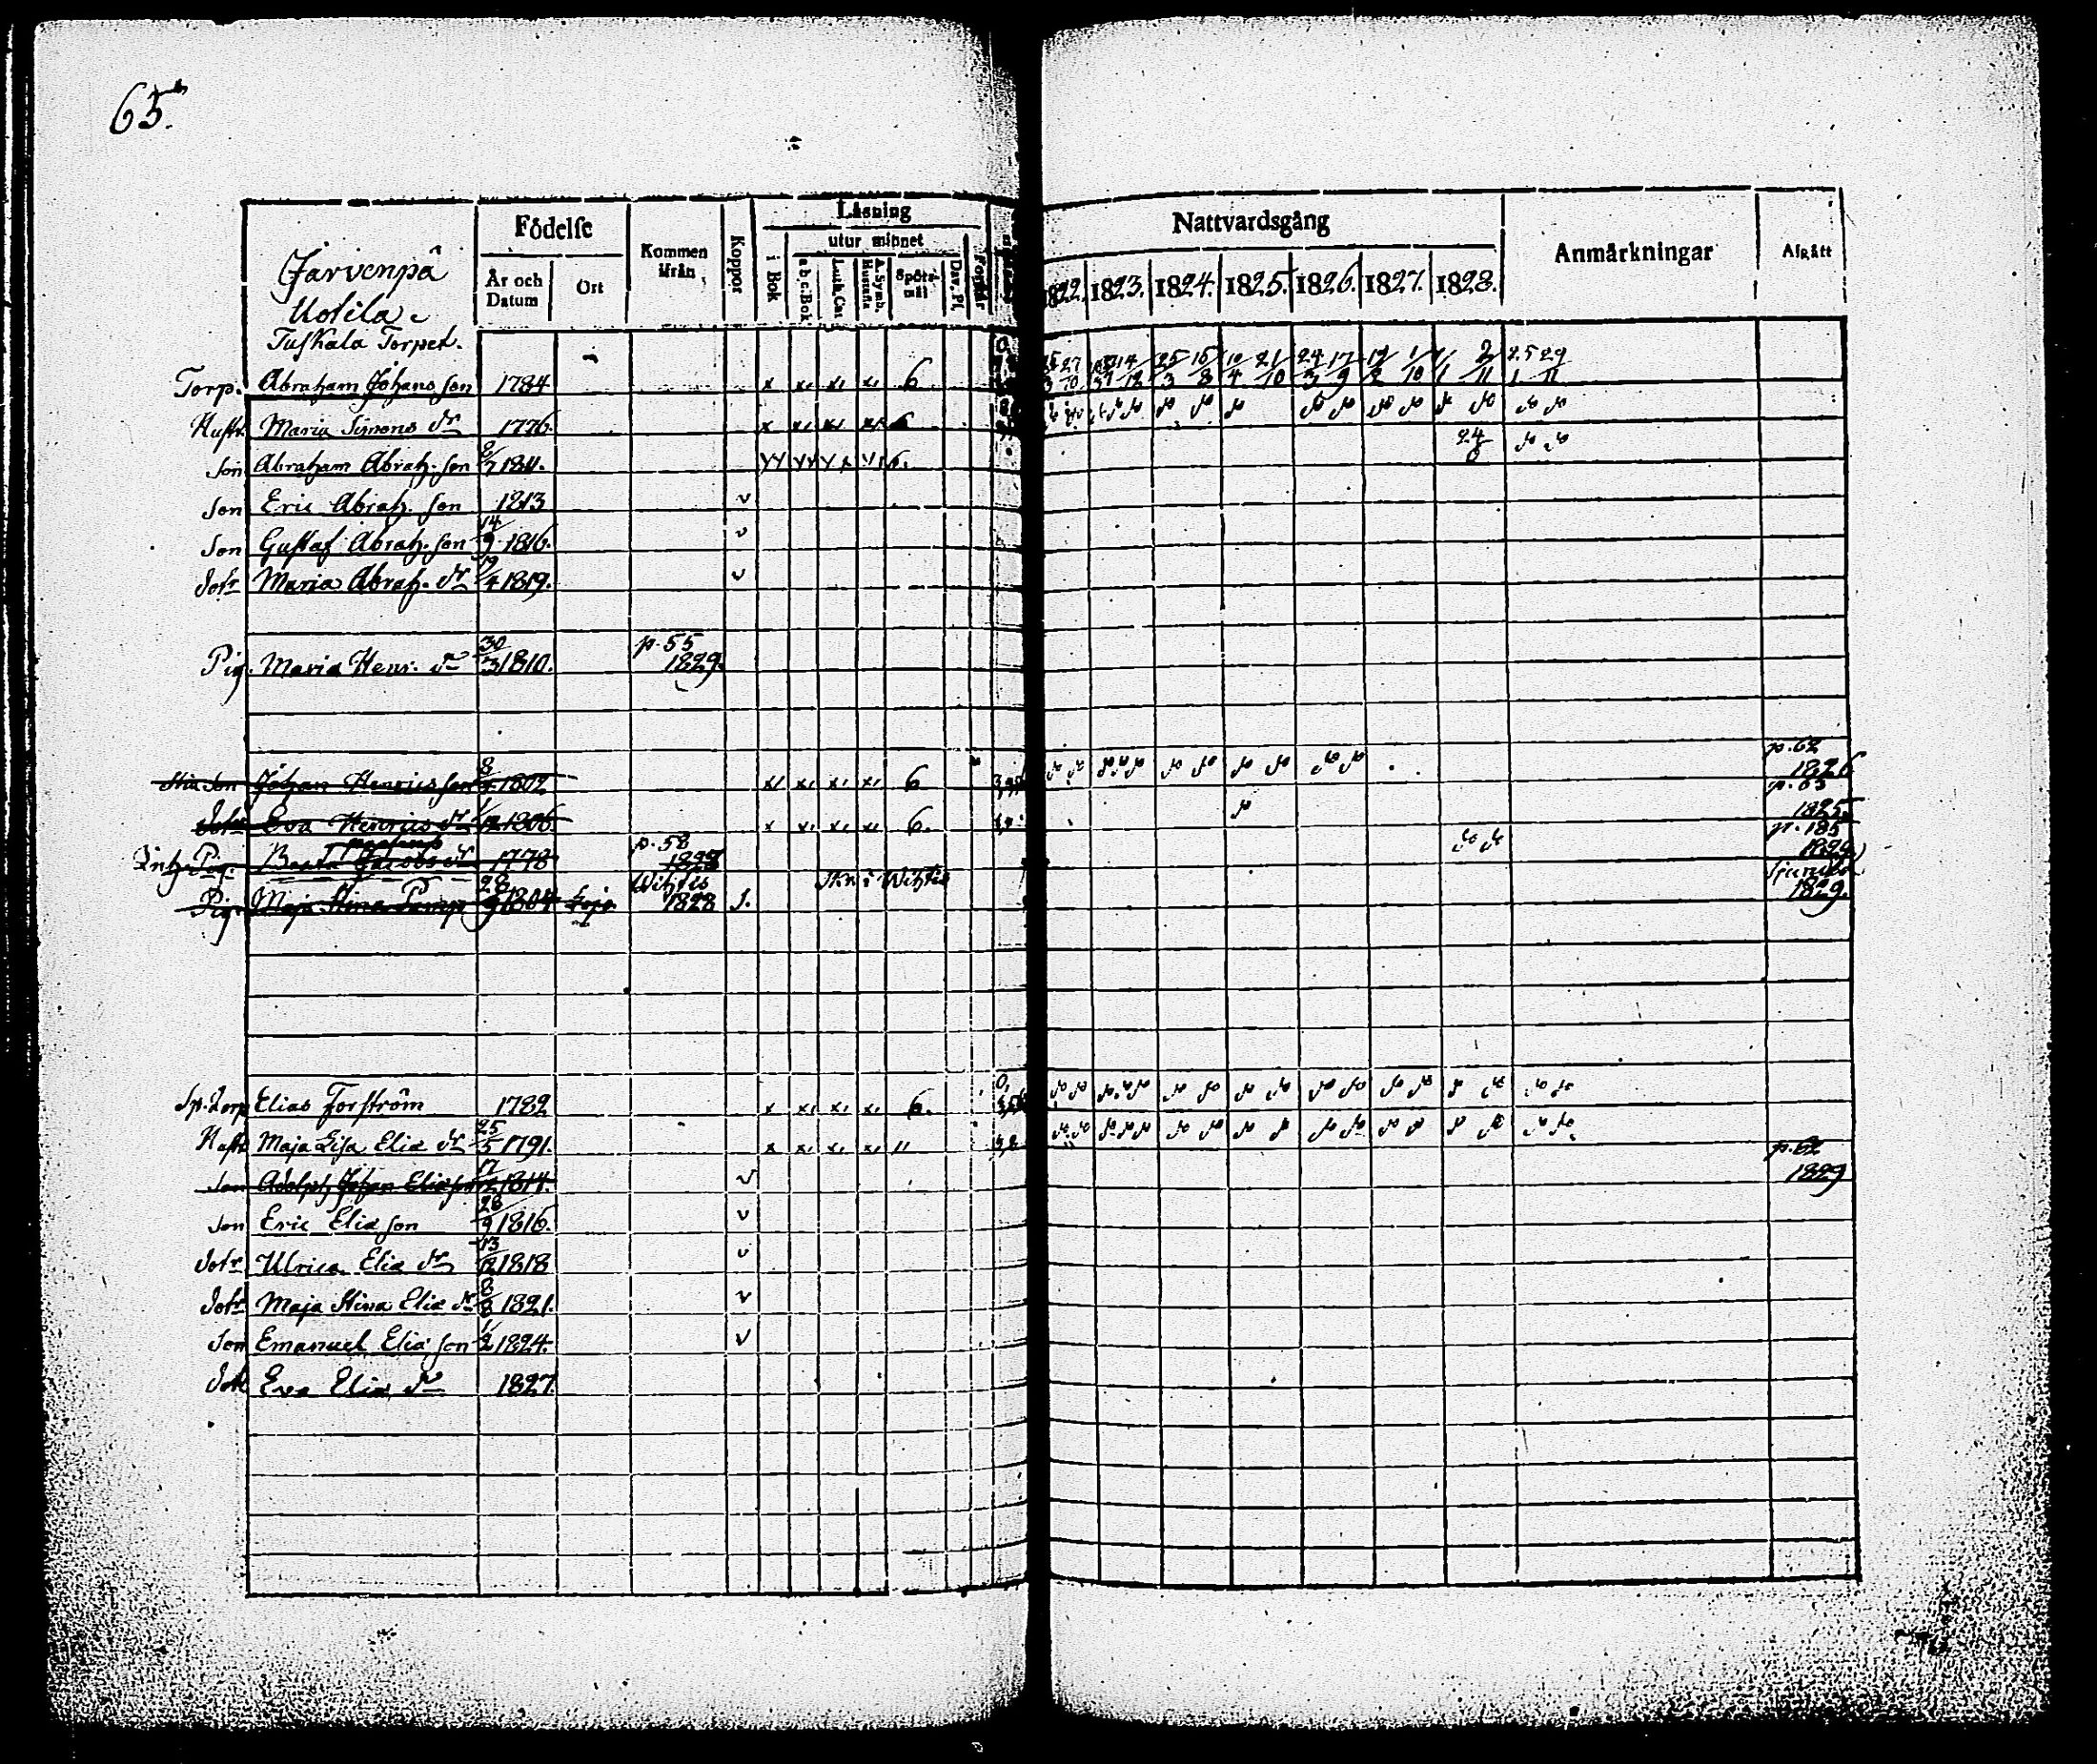 65.
Födelse
Kommen ifrån
Koppor
Läsning
utur minnet
i Bok
a.b.c.Bok
Luth. Cat
A. Symb. Hustafla
Spörsmål
Dav. Ps.
Förstår
År och Datum
Ort
Nattvardsgång
1822. 1823. 1824. 1825. 1826. 1827. 1828.
Anmärkningar
Afgått
Jarvenpä
Uotila
Tuskala Torpet.
Torp. Abraham Johans son 1784 6
Hustr. Maria Simons dr 1776. 6
Son Abraham Abrah. son 1811. 6.
Son Eric Abrah. son 1813
Son Gustaf Abrah. son 14/9 1816.
Dotr Maria Abrah. dr 19/4 1819.
Pig. Maria Henr. dr 30/3 1810. p. 55 1829.
Johan Henrics son 1802 6 p. 62 1826
Dotr Eva Henrics dr 1/12 1806. 6. p. 63 1825
Pig. Beata Jacobs dr 1778 p. 58 p. 185
Pig. Maja Stina 28/9 1804 Lojo Wihtis 1828 i Wihtis Sjundeå 1829.
Elias Forström 1782 6.
Hustr Maja Lisa Elia dr 25/5 1791. 11
Son Adolph Johan Elia son 17/12 1814. p. 62 1829
Son Eric Elia son 28/9 1816.
Dotr Ulrica Elia dr 13/12 1818
Dotr Maja Stina Elia dr 8/8 1821.
Son Emanuel Elia son 1/2 1824.
Dotr Eva Elia dr 1827.